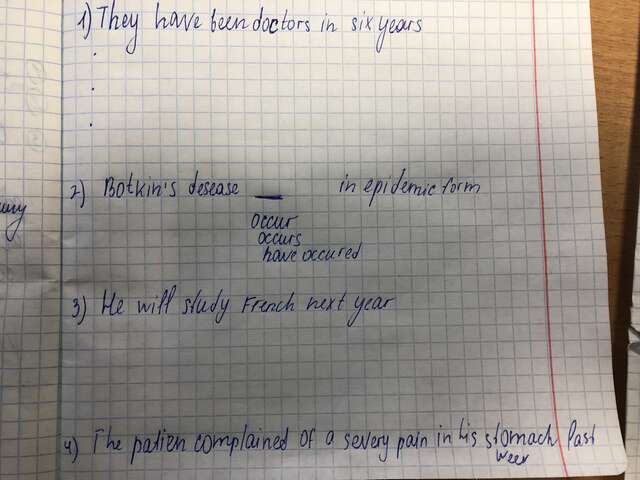 1) They have been doctors in six years
2) Botkin's desease — in epidemic form
occur
occurs
have occured
3) He will study French next year
4) The patien complained of a severy pain in his stomach last
week